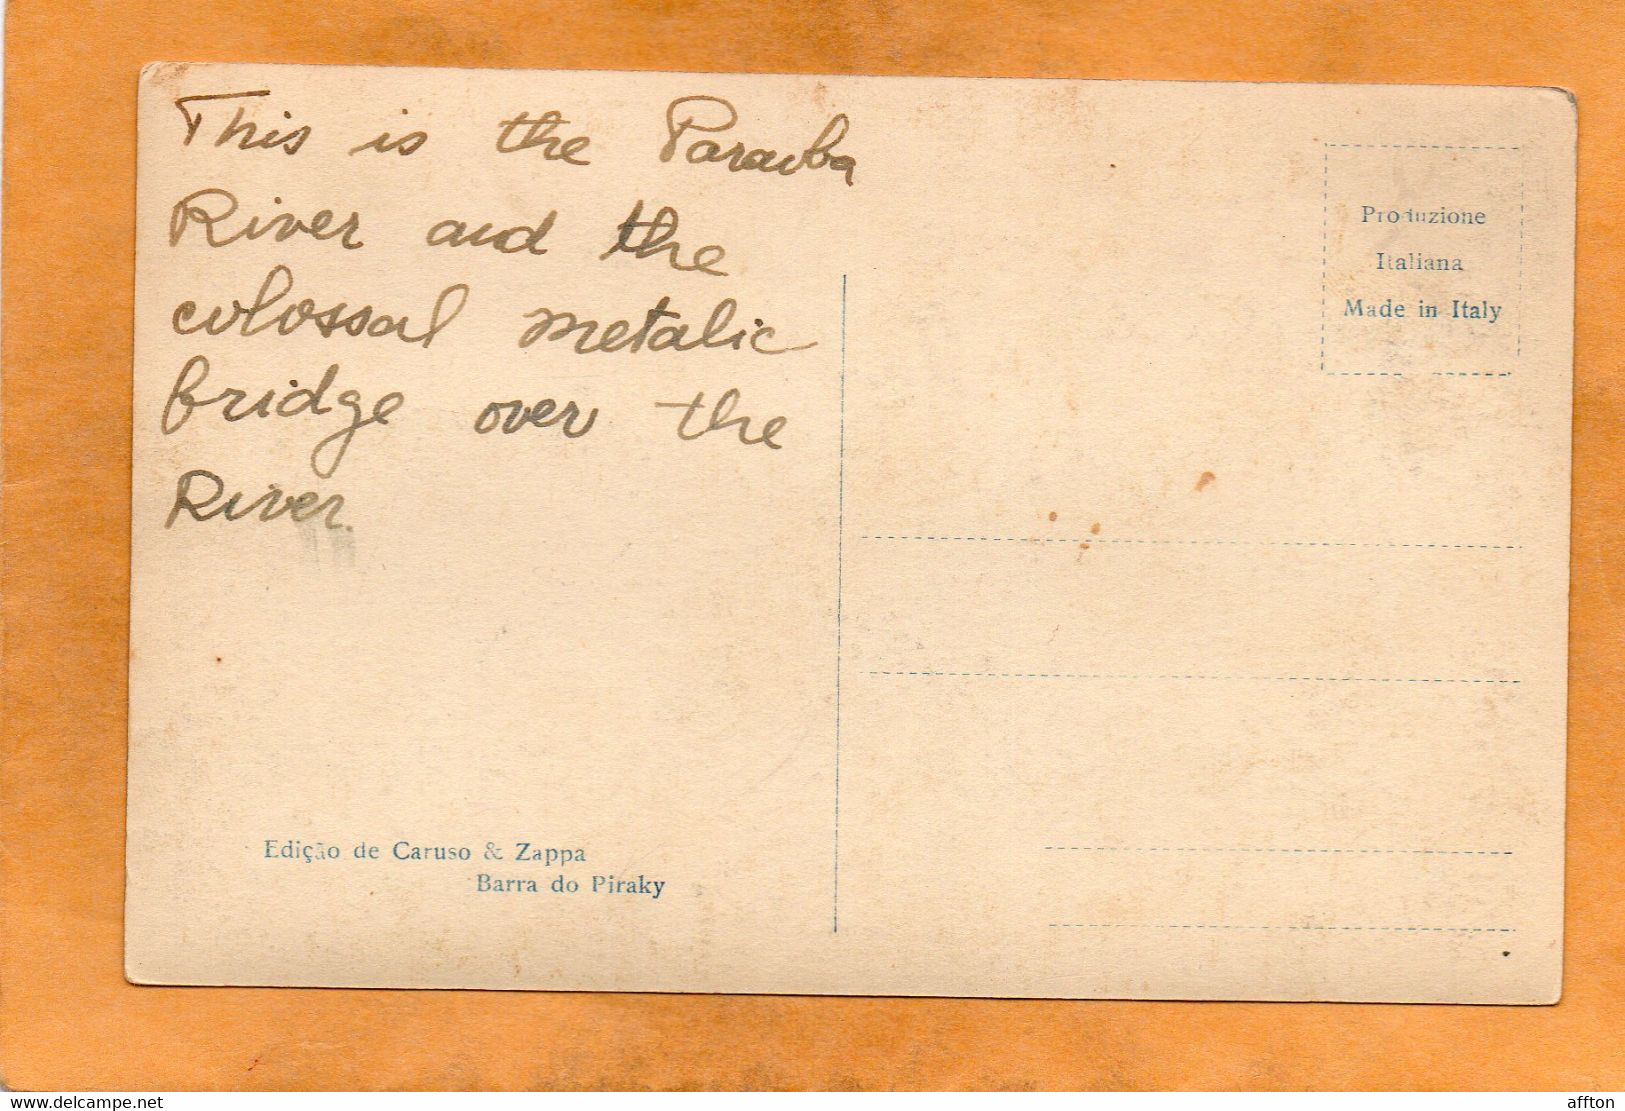 This is the Paraiba
River and the
colossal metalic
bridge over the
River.
Produzione
Italiana
Made in Italy
Edição de Caruso & Zappa
Barra do Piraky
delcampe.net
affton